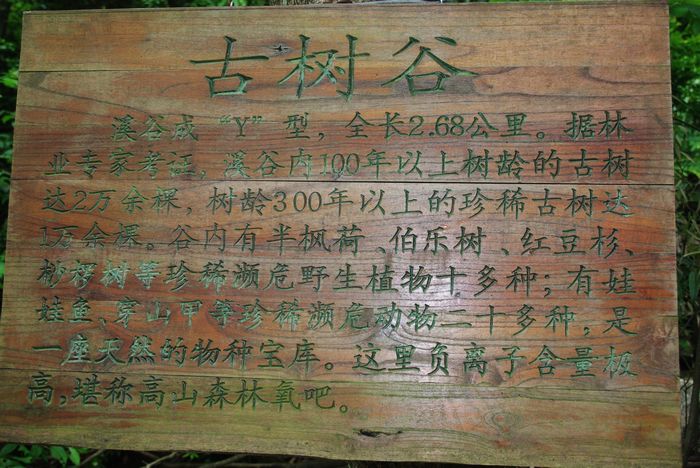 古树谷
溪谷成“Y”型，全长2.68公里。据林
业专家考证，溪谷内100年以上树龄的古树
达2万余棵，树龄300年以上的珍稀古树达
1万余棵。谷内有半枫荷、伯乐树、红豆杉、
桫椤树等珍稀濒危野生植物十多种；有娃
娃鱼、穿山甲等珍稀濒危动物二十多种，是
一座天然的物种宝库。这里负离子含量极
高，堪称高山森林氧吧。